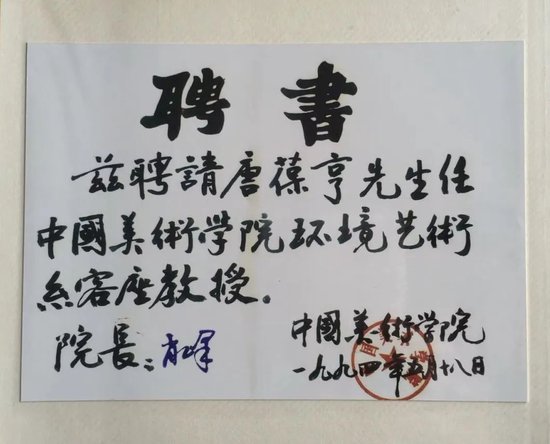 聘書
茲聘請唐葆亨先生任
中國美術学院环境艺術
系客座教授。
院長：肖峰
中國美術学院
一九九四年五月十八日